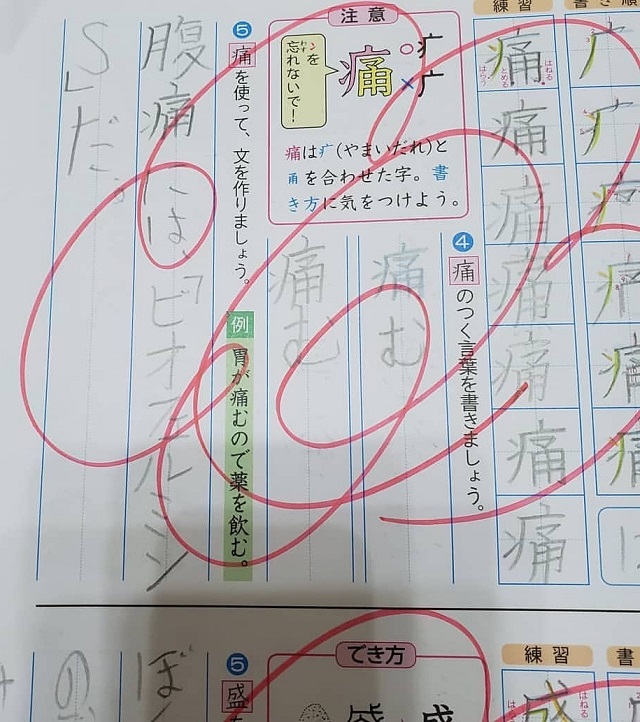 練習
書き順
痛
はらう
とめる
はねる
痛
痛
痛
痛
痛
痛
注意
疒
广
痛
冫を忘れないで!
わす
痛は疒(やまいだれ)と
甬を合わせた字。書
き方に気をつけよう。
❹ 痛のつく言葉を書きましょう。
痛む
痛む
❺ 痛を使って、文を作りましょう。
例 胃が痛むので薬を飲む。
腹痛には、「ビオフェルミン
S」だ。
練習
書
できる方
成
はねる
は
盛
❺ 盛
ぼ
の